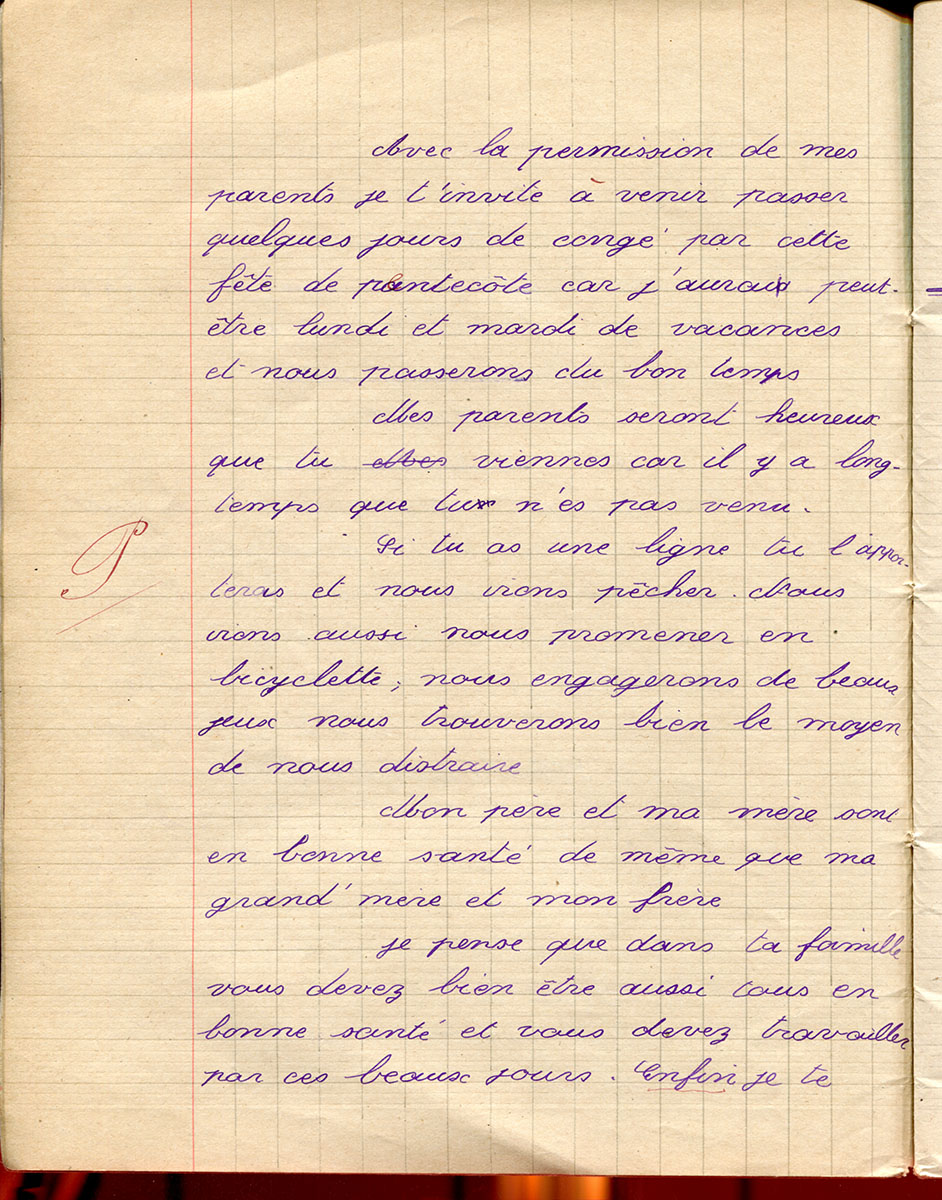 Avec la permission de mes
parents je t'invite à venir passer
quelques jours de congé par cette
fête de pentecôte car j'aurai peut-
être lundi et mardi de vacances
et nous passerons du bon temps
Mes parents seront heureux
que tu Mes viennes car il y a long-
temps que tu n'es pas venu.
Si tu as une ligne tu l'appor-
teras et nous irons pêcher. Nous
irons aussi nous promener en
bicyclette; nous engagerons de beaux
jeux nous trouverons bien le moyen
de nous distraire
Mon père et ma mère sont
en bonne santé de même que ma
grand'mère et mon frère
je pense que dans ta famille
vous devez bien être aussi tous en
bonne santé et vous devez travailler
par ces beaux jours. Enfin je te